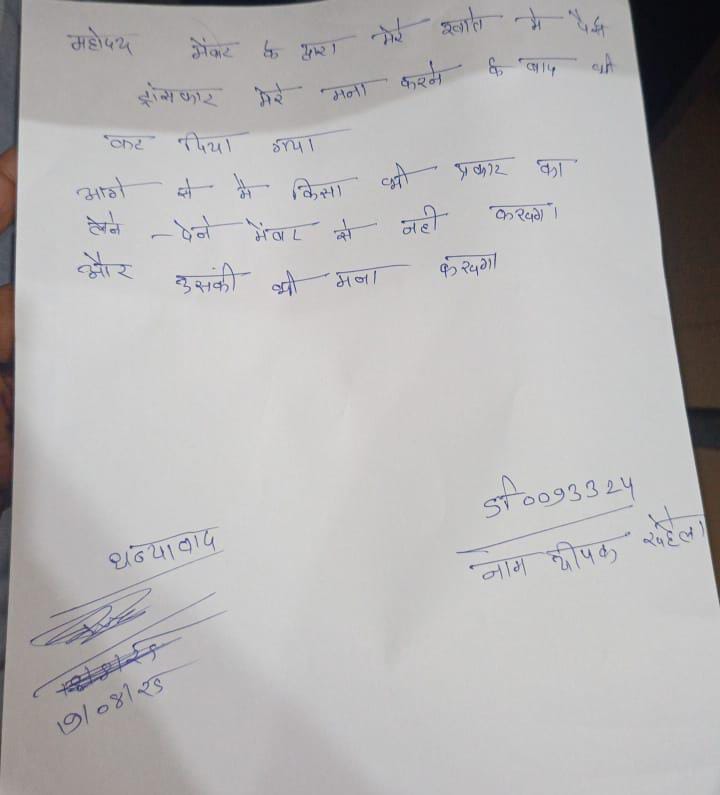 महोदय मेंबर के द्वारा मेरे खाते मे पैसे
ट्रांसफार मेरे मना करने के बाद भी
कर दिया गया
आगे से मै किसा भी प्रकार का
लेने - देने मेंबर से नही करूगा
और उसकी भी मना करूगा
धन्यावाद
SF0093324
नाम दीपक रूहेला